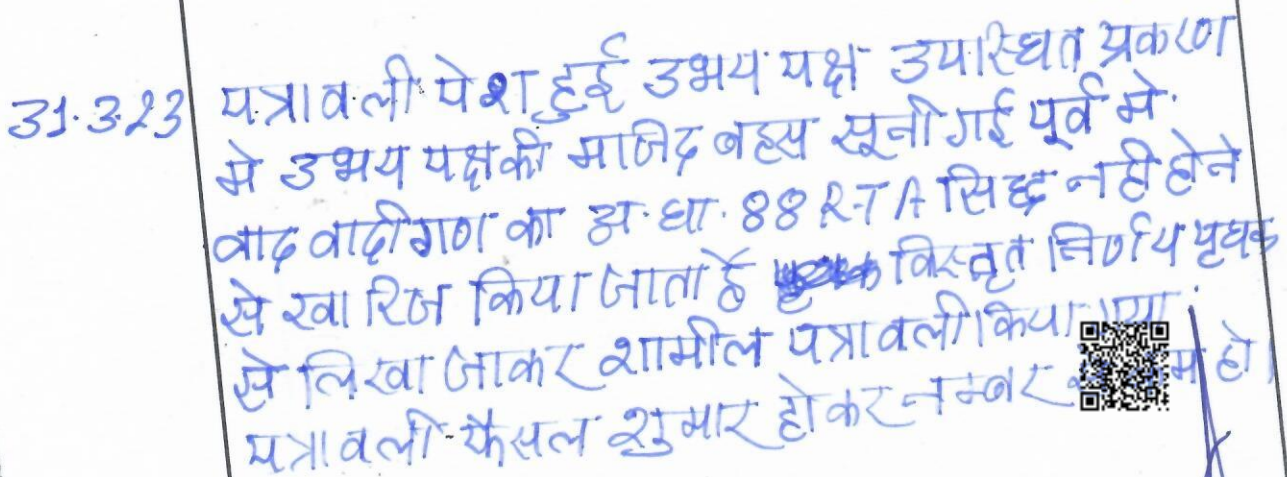 31.3.23 पत्रावली पेश हुई उभय पक्ष उपस्थित प्रकरण
मे उभय पक्ष की माजिद बहस सूनी गई पूर्व मे
वाद वादीगण का अ. धा. 88 R.T A सिद्ध नही होने
से खारिज किया जाता है विस्तृत निर्णय पृथक
से लिखा जाकर शामील पत्रावली किया गया
पत्रावली फैसल शुमार होकर नम्बर हो।